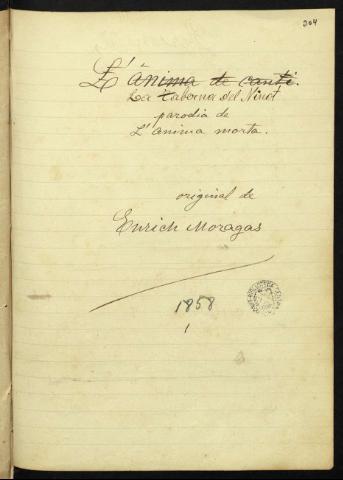 204
L'ánima de cantí.
La taberna del Ninot
parodia de
L'ánima morta.
original de
Enrich Moragas
1858
1